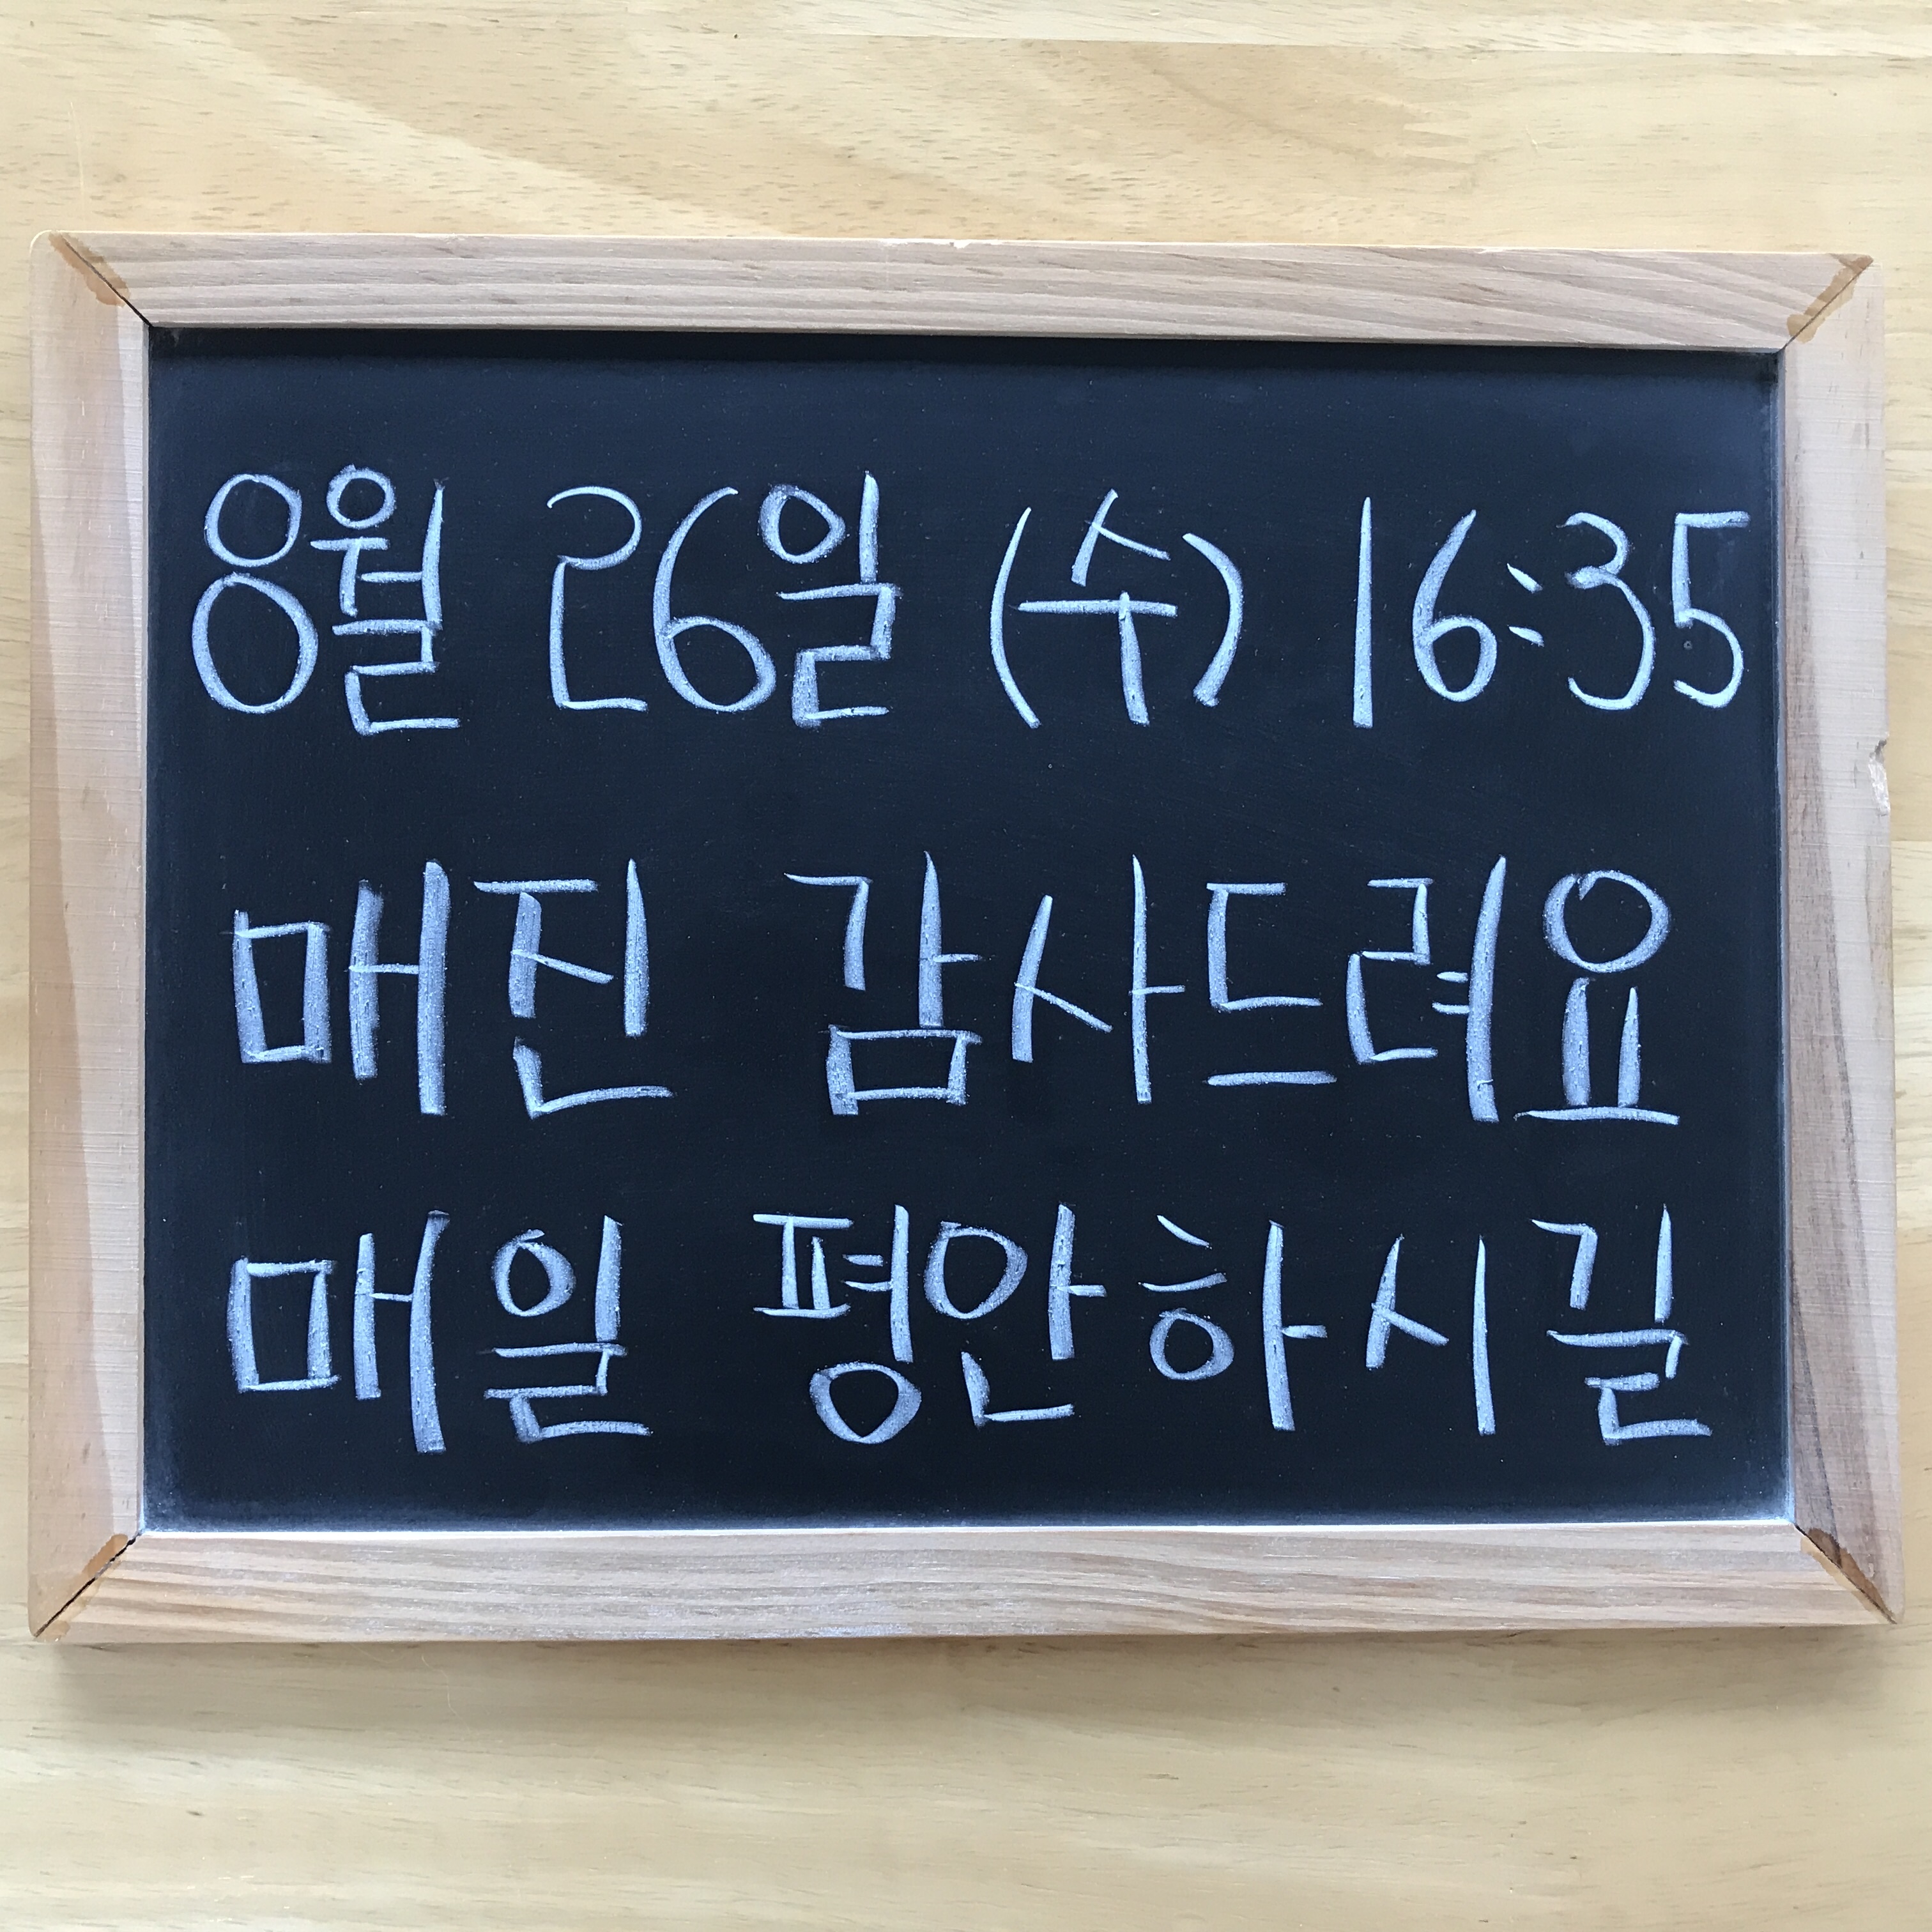 8월 26일 (수) 16:35
매진 감사드려요
매일 평안하시길